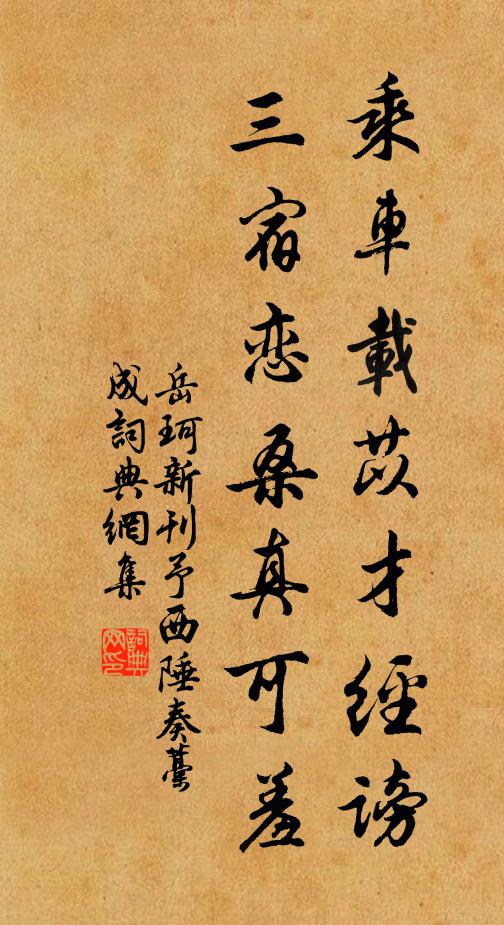 乘車載苡才經謗
三宿恋桑真可羞
岳珂新刊予西陲奏藁
成詞典網集
詞典网印